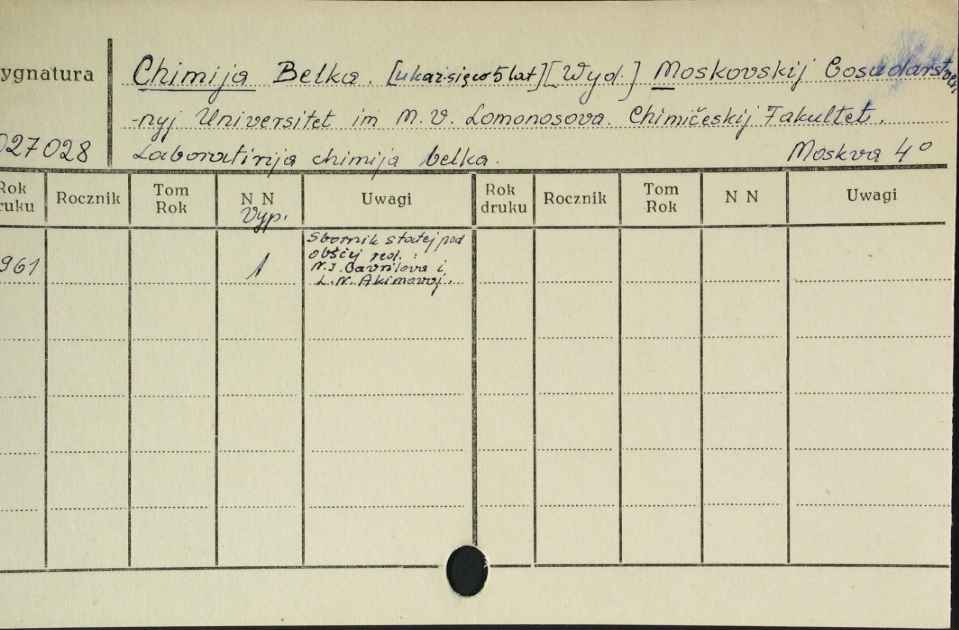 ygnatura
Chimija Bełka. [ukaz.się co 5 lat] [Wyd.] Moskovskij Gosudarstven
-nyj Universitet im M.V. Lomonosova. Chimičeskij Fakultet.
027028 Laboratirija chimija bełka. Moskva 4°
Rok druku Rocznik Tom Rok N N Vyp. Uwagi Rok druku Rocznik Tom Rok N N Uwagi
961 1 Sbornik statej pod
obščij red.:
N.I. Gavrilova i
L.N. Akimovoj.